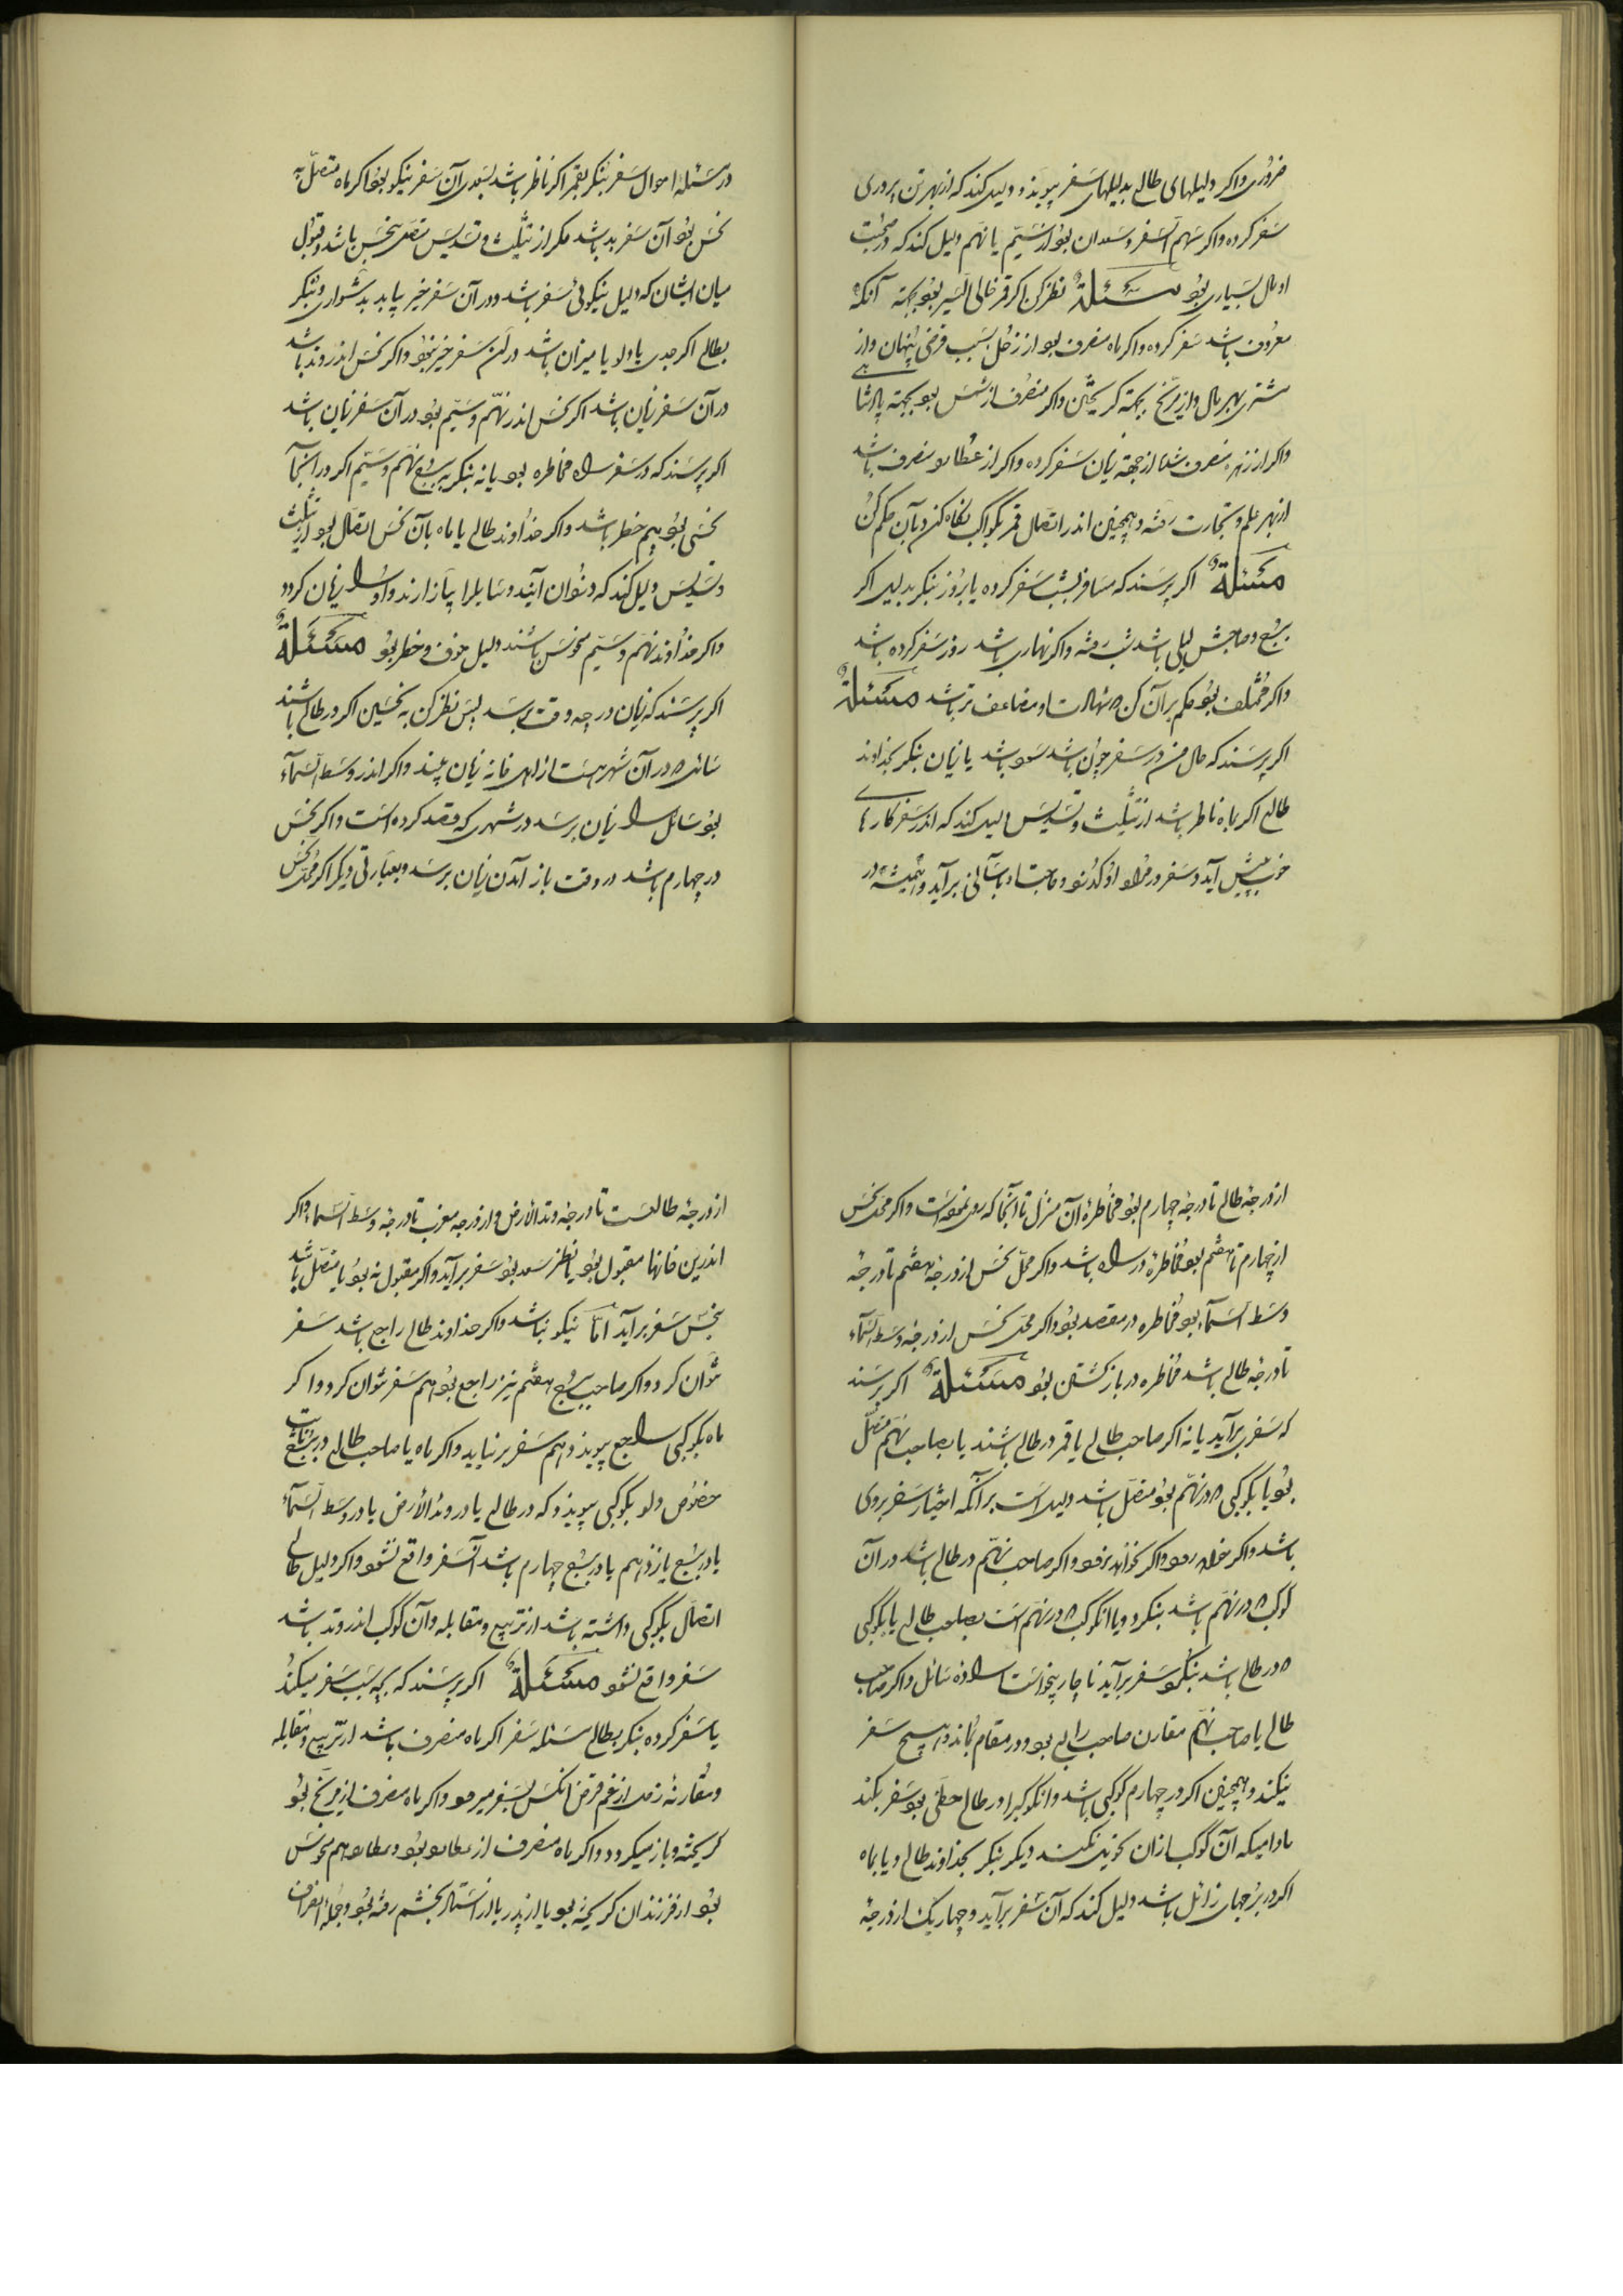 ضروری واکر دلیلهای طالع بدلیلهای سفر پیوندد دلیل کند که از بهر تن پروری
سفر کرده واکر سهم السفر و سعدان بود از سیم یا نهم دلیل کند که در صحبت
او مال بسیاری بود مسئلة نظر کن اکر قمر خالی السیر بود بجهته آنکه
معروف باشد سفر کرده واکر ماه منصرف بود از زحل بسبب قرضی پنهان واز
مشتری بهر مال واز مریخ بجهته کریختن واکر منصرف از شمس بود بجهته پادشاهی
واکر از زهره منصرف از جهة زنان سفر کرده واکر از عطارد منصرف باشد
از بهر علم و تجارت رفته و همچنین اندر اتصال قمر بکواکب نکاه کن و بآن حکم کن
مسئلة اکر پرسند که مسافر بشب سفر کرده یا بروز بنکر بدلیل اکر
ببرج و صاحبش لیلی باشد بشب رفته واکر نهاری باشد روز سفر کرده باشد
واکر مختلف بود حکم بر آن کن که شهادات او مضاعف تر باشد مسئلة
اکر پرسند که حال من در سفر چون باشد سود باشد یا زیان بنکر بخداوند
طالع اکر بماه ناظر باشد از تثلیث و تسدیس دلیل کند که اندر سفر کارهای
خوب پیش آید و سفر در مراد او کذرد و حاجتها بآسانی برآید و همیشه در
در مسئله احوال سفر بنکر بقمر اکر ناظر باشد بسعدی آن سفر نیکو بود واکر ماه متصل به
نحس بود آن سفر بد باشد مکر از تثلیث و تسدیس متصل بنحس باشد و قبول
میان ایشان که دلیل نیکوئی سفر باشد و در آن سفر خیر یابد بدشواری و بنکر
بطالع اکر جدی یا دلو یا میزان باشد در آن سفر خیر نبود واکر نحس اندر وتد باشد
در آن سفر زیان باشد اکر نحس اندر نهم و سیم بود در آن سفر زیان باشد
اکر پرسند که در سفر راه مخاطره بود یا نه بنکر ببرج نهم و سیم اکر در آنجا
نحسی بود بیم خطر باشد واکر خداوند طالع یا ماه بآن نحس اتصال بود از تثلیث
و تسدیس دلیل کند که دزدان آیند و سایل را بیازارند و او را زیان کردد
واکر خداوند نهم و سیم منحوس باشند دلیل خوف و خطر بود مسئلة
اکر پرسند که زیان در چه وقت برسد پس نظر کن به نحسین اکر در طالع باشند
سائل که در آن شهر هست از اهل خانه زیان بیند واکر اندر وسط السمآء
بود سائل را زیان برسد در شهری که قصد کرده است واکر نحس
در چهارم باشد در وقت باز آمدن زیان برسد و بعبارتی دیکر اکر محل نحس
از درجهٔ طالع تا درجهٔ چهارم بود مخاطرهٔ آن منزل تا آنجا که روی نموده است واکر محل نحس
از چهارم تا هفتم بود مخاطره در راه باشد واکر محل نحس از درجهٔ هفتم تا درجهٔ
وسط السمآء بود مخاطره در مقصد بود واکر محل نحس از درجه وسط السمآء
تا درجهٔ طالع باشد مخاطره در باز کشتن بود مسئلة اکر پرسند
که سفر برآید یا نه اکر صاحب طالع یا قمر در طالع باشند یا بصاحب نهم متصل
بود یا بکوکبی که در نهم بود متصل باشد دلیل است بر آنکه اختیار سفر بروی
باشد واکر خواهد رود واکر نخواهد نرود واکر صاحب نهم در طالع باشد در آن
کوکب که در نهم باشد بنکرد و یا آن کوکب که در نهم است بصاحب طالع یا بکوکبی
که در طالع باشد بنکرد سفر برآید ناچار بخواست و ارادهٔ سائل واکر صاحب
طالع یا صاحب نهم مقارن صاحب رابع بود و در مقام بماند و هیچ سفر
نیکند و همچنین اکر در چهارم کوکبی باشد و آن کوکب را در طالع حظی بود سفر بکند
مادامیکه آن کوکب از آن تحویل نکند دیکر بنکر بخداوند طالع و یا بماه
اکر در برجهای زائل باشد دلیل کند که آن سفر برآید و چهار یک از درجهٔ
از درجهٔ طالعست تا درجه وتد الأرض واز درجه مغرب تا درجه وسط السماء واکر
اندرین خانها مقبول بود یا بنظر سعد بود سفر برآید واکر مقبول نه بود یا متصل باشد
بنحس سفر برآید امّا نیکو نباشد واکر خداوند طالع راجع باشد سفر
نتوان کرد واکر صاحب برج هفتم نیز راجع بود هم سفر نتوان کرد واکر
ماه بکوکبی راجع پیوندد هم سفر برنیاید واکر ماه یا صاحب طالع در برج ثابت
خصوص دلو بکوکبی پیوندد که در طالع یا در وتد الأرض یا در وسط السمآء
یا در برج یازدهم یا در برج چهارم باشد آن سفر واقع نشود واکر دلیل طالع
اتصال بکوکبی داشته باشد از تربیع و مقابله و آن کوکب اندر وتد باشد
سفر واقع نشود مسئلة اکر پرسند که بچه سبب سفر میکند
یا سفر کرده بنکر بطالع مسئله سفر اکر ماه منصرف باشد از تربیع و مقابله
و مقارنهٔ زحل از غم قرض آنکس بسفر میرود واکر ماه منصرف از مریخ بود
کریخته و باز میکردد واکر ماه منصرف از عطارد بود و عطارد هم منحوس
بود از فرزندان کریخته بود یا از پدر یا از استاد بخشم رفته بود و جمله انصراف